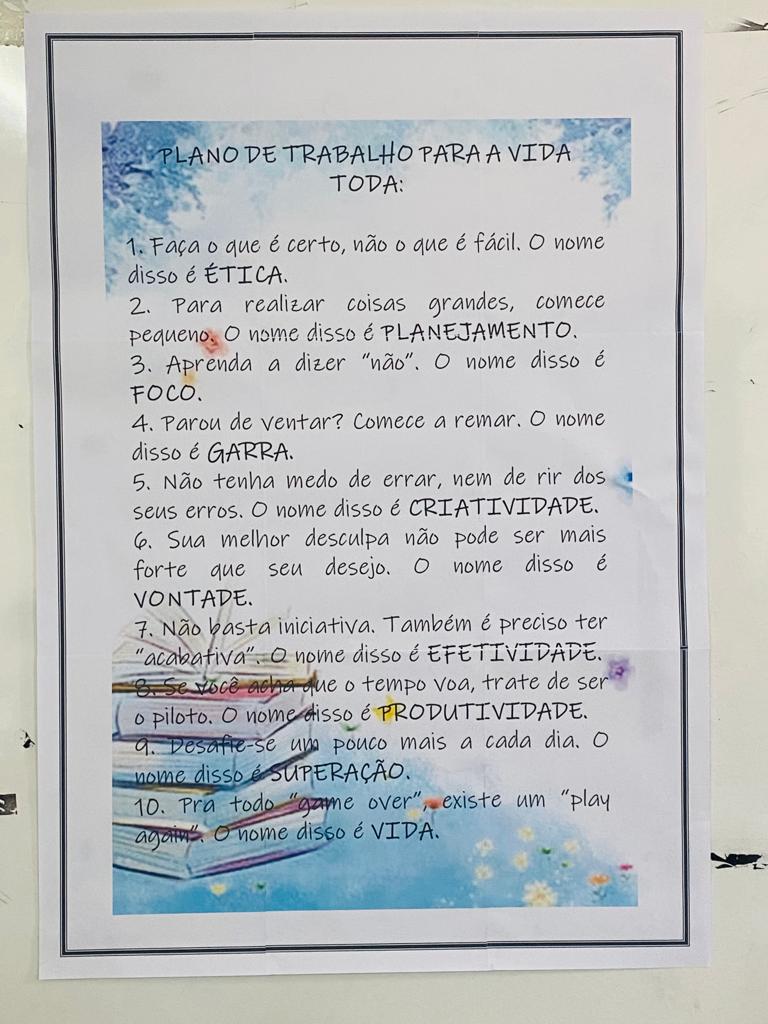 PLANO DE TRABALHO PARA A VIDA
TODA:
1. Faça o que é certo, não o que é fácil. O nome
disso é ÉTICA.
2. Para realizar coisas grandes, comece
pequeno. O nome disso é PLANEJAMENTO.
3. Aprenda a dizer "não". O nome disso é
FOCO.
4. Parou de ventar? Comece a remar. O nome
disso é GARRA.
5. Não tenha medo de errar, nem de rir dos
seus erros. O nome disso é CRIATIVIDADE.
6. Sua melhor desculpa não pode ser mais
forte que seu desejo. O nome disso é
VONTADE.
7. Não basta iniciativa. Também é preciso ter
"acabativa". O nome disso é EFETIVIDADE.
8. Se você acha que o tempo voa, trate de ser
o piloto. O nome disso é PRODUTIVIDADE.
9. Desafie-se um pouco mais a cada dia. O
nome disso é SUPERAÇÃO.
10. Pra todo "game over", existe um "play
again". O nome disso é VIDA.